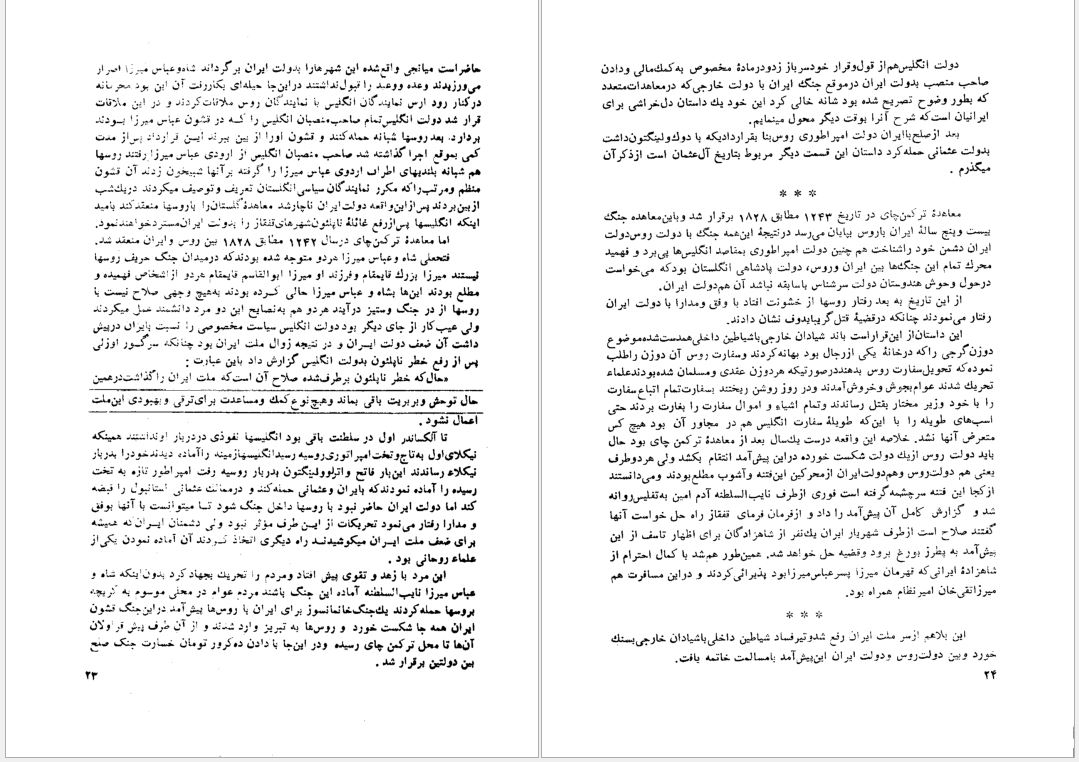 حاضراست میانجی واقع‌شده این شهرهارا بدولت ایران برگرداند شاه‌وعباس میرزا اصرار
می‌ورزیدند وعده ووعید را قبول‌نداشتند دراین‌جا حیله‌ای بکاررفت آن این بود محرمانه
درکنار رود ارس نمایندگان انگلیس با نمایندگان روس ملاقات‌کردند و در این ملاقات
قرار شد دولت انگلیس‌تمام صاحب‌منصبان انگلیس را که در قشون عباس میرزا بودند
بردارد. بعد روسها شبانه حمله‌کنند و قشون اورا از بین ببرند ایـن قرارداد پس‌از مدت
کمی بموقع اجرا گذاشته شد صاحب منصبان انگلیس از اردوی عباس میرزا رفتند روسها
هم شبانه بلندیهای اطراف اردوی عباس میرزا را گرفته برآنها شبیخون زدند آن قشون
منظم ومرتب‌راکه مکرر نمایندگان سیاسی‌انگلستان تعریف و توصیف میکردند دریک‌شب
ازبین‌بردند پس‌ازاین‌واقعه دولت‌ایران ناچارشد معاهدهٔ گلستان‌را باروسها منعقدکند بامید
اینکه انگلیسها پس‌ازرفع غائلهٔ ناپلئون‌شهرهای‌قفقاز را بدولت ایران‌مستردخواهندنمود.
اما معاهدهٔ ترکمن‌چای درسال ۱۲۴۲ مطابق ۱۸۲۸ بین روس و ایران منعقد شد.
فتحعلی شاه وعباس میرزا هردو متوجه شده بودندکه درمیدان جنگ حریف روسها
نیستند میرزا بزرگ قایمقام وفرزند او میرزا ابوالقاسم قایمقام هردو ازاشخاص فهمیده و
مطلع بودند این‌ها بشاه و عباس میرزا حالی کـرده بودند به‌هیچ وجهی صلاح نیست با
روسها از در جنگ وستیز درآیند هردو هم به‌نصایح این دو مرد دانشمند عمل میکردند
ولی عیب‌کار از جای دیگر بود دولت انگلیس سیاست مخصوصی را نسبت بایران درپیش
داشت آن ضعف دولت ایـران و در نتیجه زوال ملت ایران بود چنانکه سرگـور اوزلی
پس از رفع خطر ناپلئون بدولت انگلیس گزارش داد باین عبارت :
«حال‌که خطر ناپلئون برطرف‌شده صلاح آن‌است‌که ملت ایران راگذاشت‌درهمین
حال توحش وبربریت باقی بماند وهیچ‌نوع‌کمک ومساعدت برای‌ترقی و بهبودی این‌ملت
اعمال نشود.
تا آلکساندر اول در سلطنت باقی بود انگلیسها نفوذی دردربار اونداشتند همینکه
نیکلای‌اول به‌تاج‌وتخت‌امپراتوری‌روسیه رسیدانگلیسهازمینه راآماده دیدندخودرا بدربار
نیکلاء رساندند این‌بار فاتح واترلوولینگتون بدربار روسیه رفت امپراطور تازه به تخت
رسیده را آماده نمودندکه باایران وعثمانی حمله‌کند و درممالک عثمانی استانبول را قبضه
کند اما دولت ایران حاضر نبود با روسها داخل جنگ شود تـا میتوانست با آنها بوفق
و مدارا رفتار می‌نمود تحریکات از ایـن طرف مؤثر نبود ولی دشمنان ایـران‌که همیشه
برای ضعف ملت ایـران میکوشیدنـد راه دیگری اتخاذ کـردند آن آماده نمودن یکی‌از
علماء روحانی بود .
این مرد با زهد و تقوی پیش افتاد ومردم را تحریک بجهادکرد بدون‌اینکه شاه و
عباس میرزا نایب‌السلطنه آماده این جنگ باشند مردم عوام در محلی موسوم به کریچه
بروسها حمله‌کردند یک‌جنگ‌خانمانسوز برای ایران با روس‌ها پیش‌آمد دراین‌جنگ قشون
ایران همه جا شکست خورد و روس‌ها به تبریز وارد شدند و از آن طرف پیش قراولان
آن‌ها تا محل ترکمن چای رسیده ودر این‌جا با دادن ده‌کرور تومان خسارت جنگ صلح
بین دولتین برقرار شد .
۲۳
دولت انگلیس‌هم‌از قول‌وقرار خودسرباز زددرمادهٔ مخصوص به‌کمک‌مالی ودادن
صاحب منصب بدولت ایران درموقع جنگ ایران با دولت خارجی‌که درمعاهدات‌متعدد
که بطور وضوح تصریح شده بود شانه خالی کرد این خود یک داستان دل‌خراشی برای
ایرانیان است‌که شرح آنرا بوقت دیگر محول مینمایم.
بعد ازصلح‌باایران دولت امپراطوری روس‌بنا بقراردادیکه با دوک‌ولینگتون‌داشت
بدولت عثمانی حمله‌کرد داستان این قسمت دیگر مربوط بتاریخ آل‌عثمان است ازذکرآن
میگذرم .
* * *
معاهدهٔ ترکمن‌چای در تاریخ ۱۲۴۳ مطابق ۱۸۲۸ برقرار شد وباین‌معاهده جنگ
بیست وپنج سالهٔ ایران باروس بپایان می‌رسد درنتیجهٔ این‌همه جنگ با دولت روس‌دولت
ایران دشمن خود راشناخت هم چنین دولت امپراطوری بمقاصد انگلیس‌ها پی‌برد و فهمید
محرک تمام این جنگ‌ها بین ایران وروس، دولت پادشاهی انگلستان بودکه می‌خواست
درحول وحوش هندوستان دولت سرشناس باسابقه نباشد آن هم‌دولت ایران.
از این تاریخ به بعد رفتار روسها از خشونت افتاد با وفق ومدارا با دولت ایران
رفتار می‌نمودند چنانکه درقضیهٔ قتل‌گریبایدوف نشان دادند.
این داستان‌از این‌قراراست باند شیادان خارجی‌باشیاطین داخلی‌همدست‌شده‌موضوع
دوزن‌گرجی راکه درخانهٔ یکی ازرجال بود بهانه‌کردند وسفارت روس آن دوزن راطلب
نموده‌که تحویل‌سفارت روس بدهنددرصورتیکه هردوزن عقدی ومسلمان شده‌بودندعلماء
تحریک شدند عوام‌بجوش وخروش‌آمدند ودر روز روشن ریختند بسفارت‌تمام اتباع‌سفارت
را با خود وزیر مختار بقتل رساندند وتمام اشیاء و اموال سفارت را بغارت بردند حتی
اسب‌های طویله را با این‌که طویلهٔ سفارت انگلیس هم در مجاور آن بود هیچ کس
متعرض آنها نشد. خلاصه این واقعه درست یک‌سال بعد از معاهدهٔ ترکمن چای بود حال
باید دولت روس ازیک دولت شکست خورده دراین پیش‌آمد انتقام بکشد ولی هردوطرف
یعنی هم دولت‌روس وهم‌دولت‌ایران ازمحرکین این‌فتنه وآشوب مطلع‌بودند ومی‌دانستند
ازکجا این فتنه سرچشمه‌گرفته است فوری ازطرف نایب‌السلطنه آدم امین به‌تفلیس‌روانه
شد و گزارش کامل آن پیش‌آمد را داد و ازفرمان فرمای قفقاز راه حل خواست آنها
گفتند صلاح است‌ازطرف شهریار ایران یک‌نفر از شاهزادگان برای اظهار تاسف از این
پیش‌آمد به پطرز بورغ برود وقضیه حل خواهد شد. همین‌طور هم‌شد با کمال احترام از
شاهزادهٔ ایرانی‌که قهرمان میرزا پسرعباس‌میرزابود پذیرائی‌کردند و دراین مسافرت هم
میرزاتقی‌خان امیرنظام همراه بود.
* * *
این بلاهم ازسر ملت ایران رفع شدوتیرفساد شیاطین داخلی‌باشیادان خارجی‌بسنگ
خورد وبین دولت‌روس ودولت ایران این‌پیش‌آمد بامسالمت خاتمه یافت.
۲۴